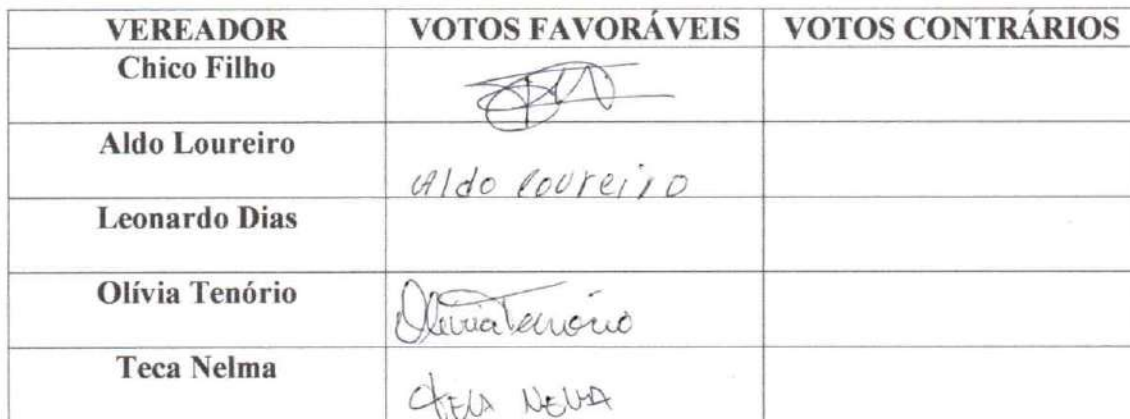 VEREADOR VOTOS FAVORÁVEIS VOTOS CONTRÁRIOS
Chico Filho
Aldo Loureiro
Aldo Loureiro
Leonardo Dias
Olívia Tenório
Olívia Tenório
Teca Nelma
Teca Nelma